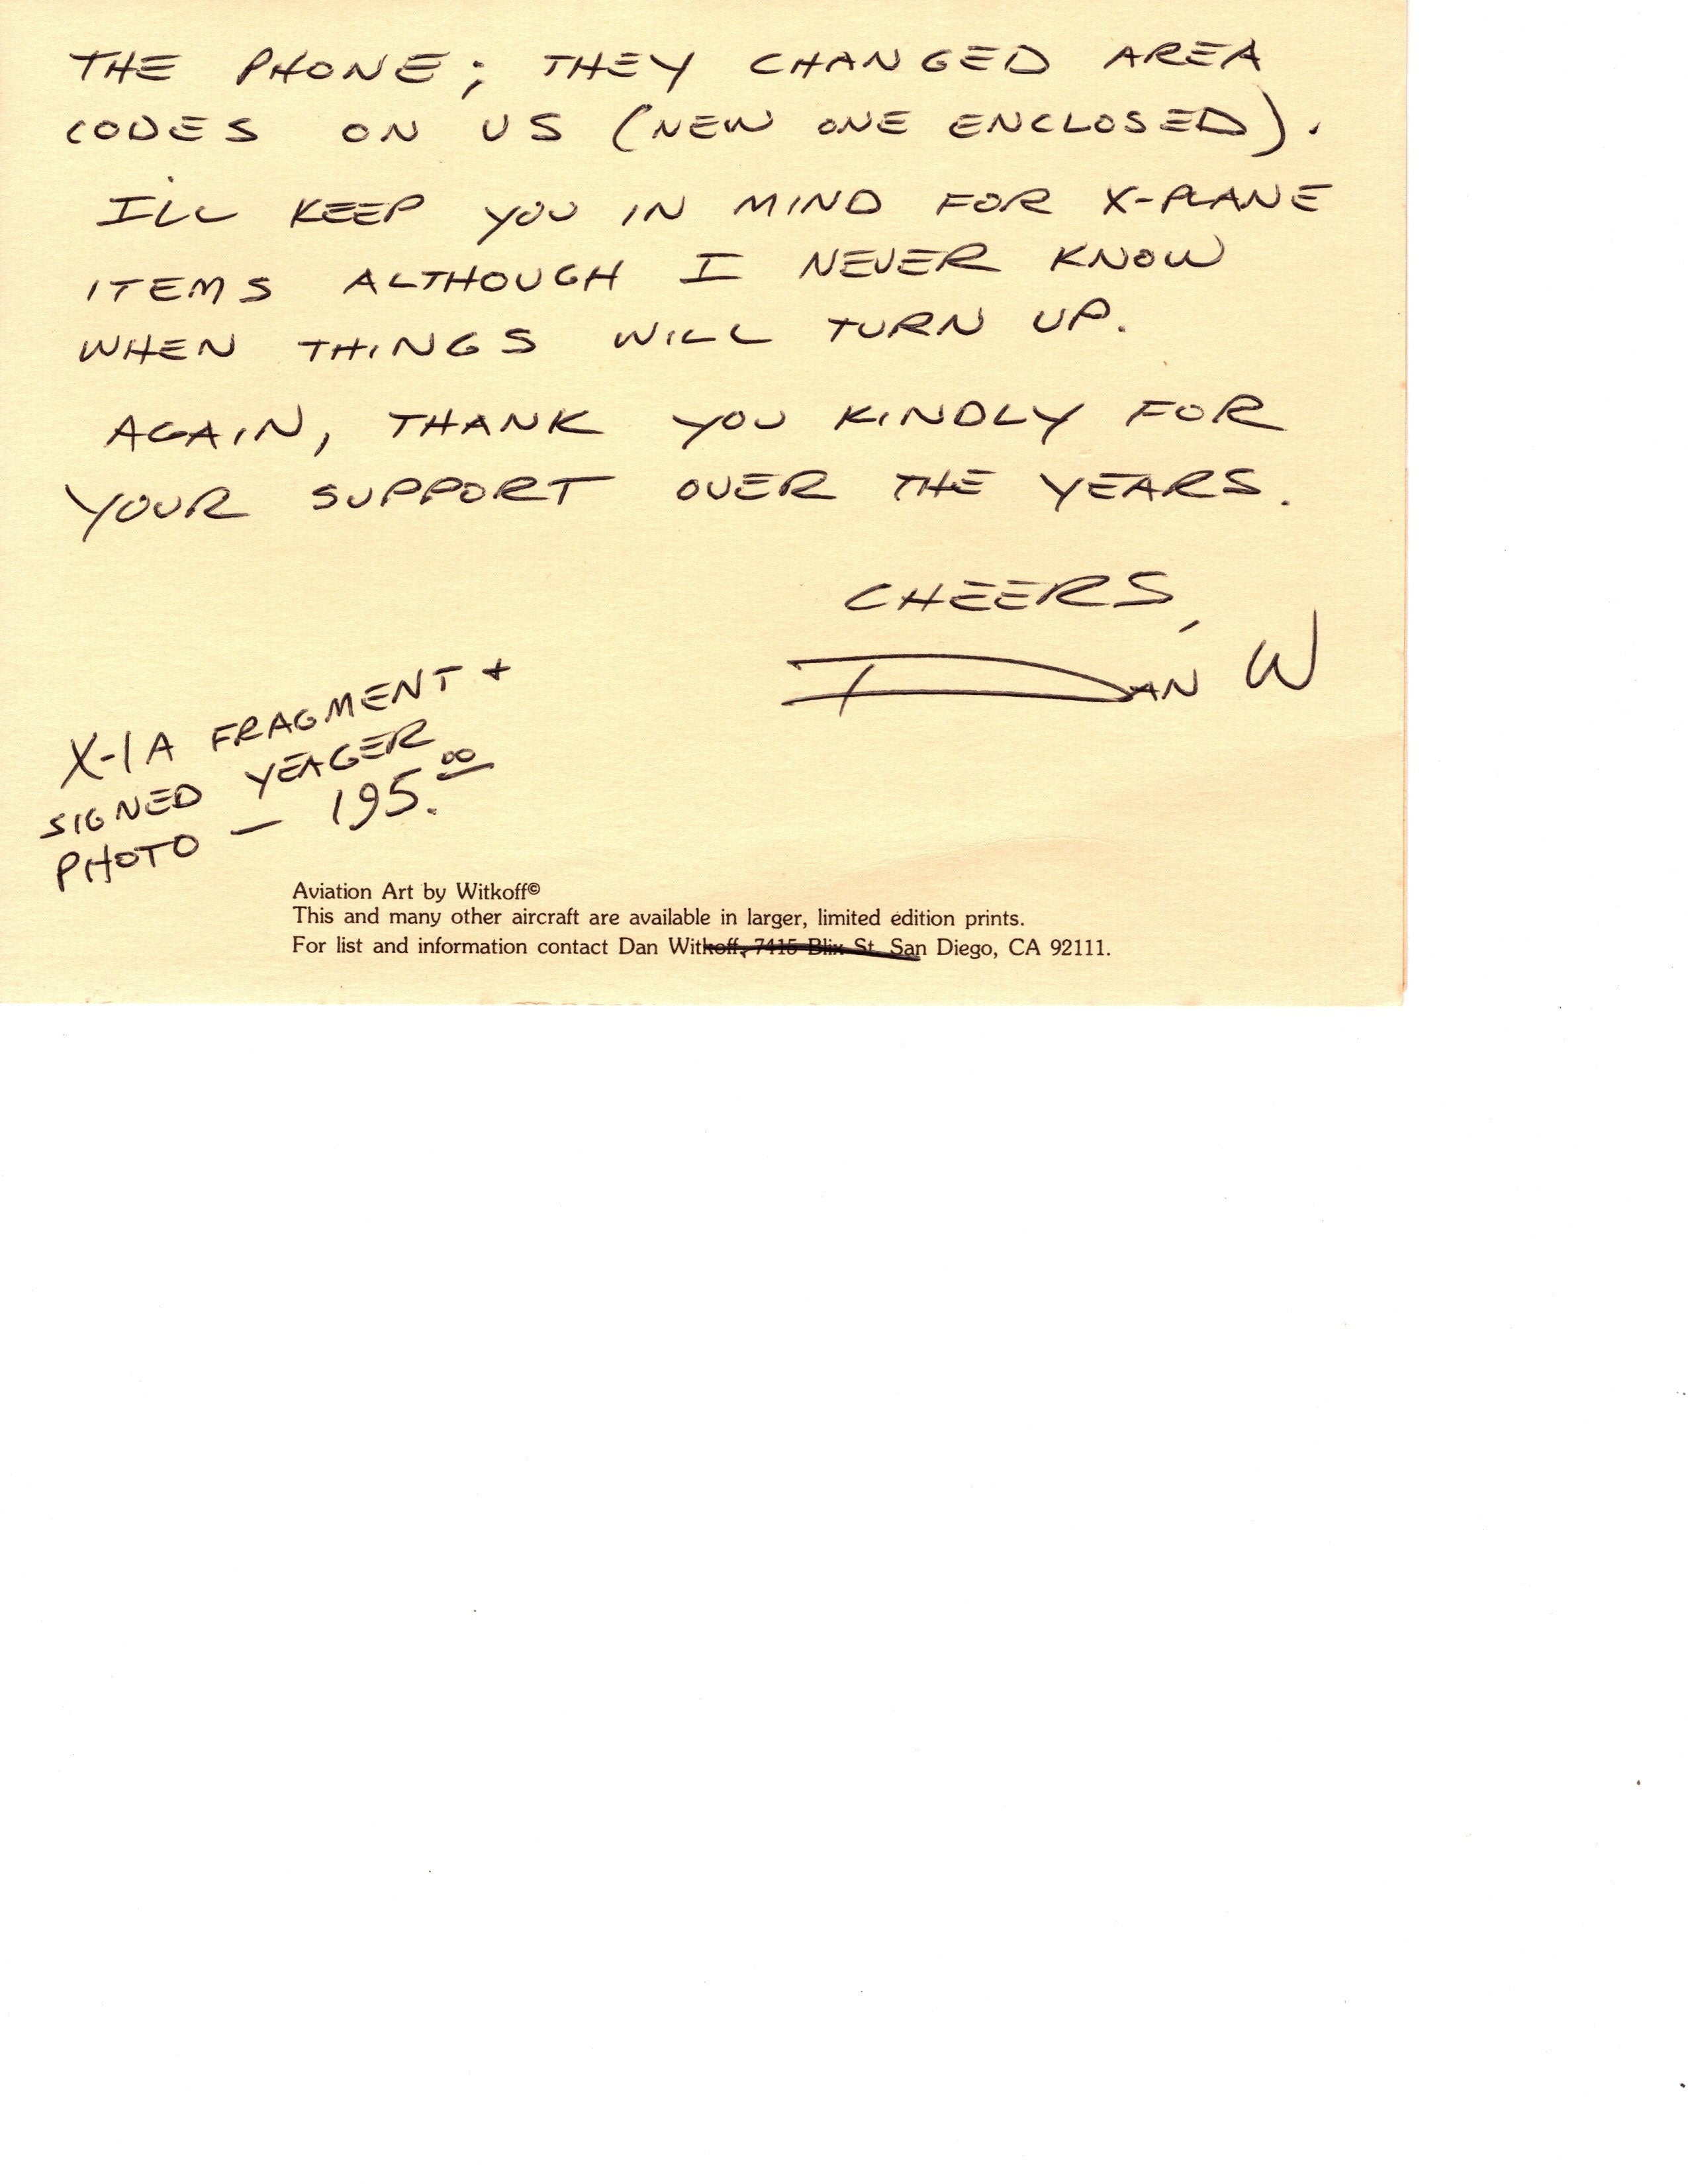 THE PHONE; THEY CHANGED AREA
CODES ON US (NEW ONE ENCLOSED).
I'LL KEEP YOU IN MIND FOR X-PLANE
ITEMS ALTHOUGH I NEVER KNOW
WHEN THINGS WILL TURN UP.
AGAIN, THANK YOU KINDLY FOR
YOUR SUPPORT OVER THE YEARS.
CHEERS,
DAN W
X-1A FRAGMENT +
SIGNED YEAGER
PHOTO — 195.00
Aviation Art by Witkoff©
This and many other aircraft are available in larger, limited edition prints.
For list and information contact Dan Witkoff, 7415 Blix St. San Diego, CA 92111.